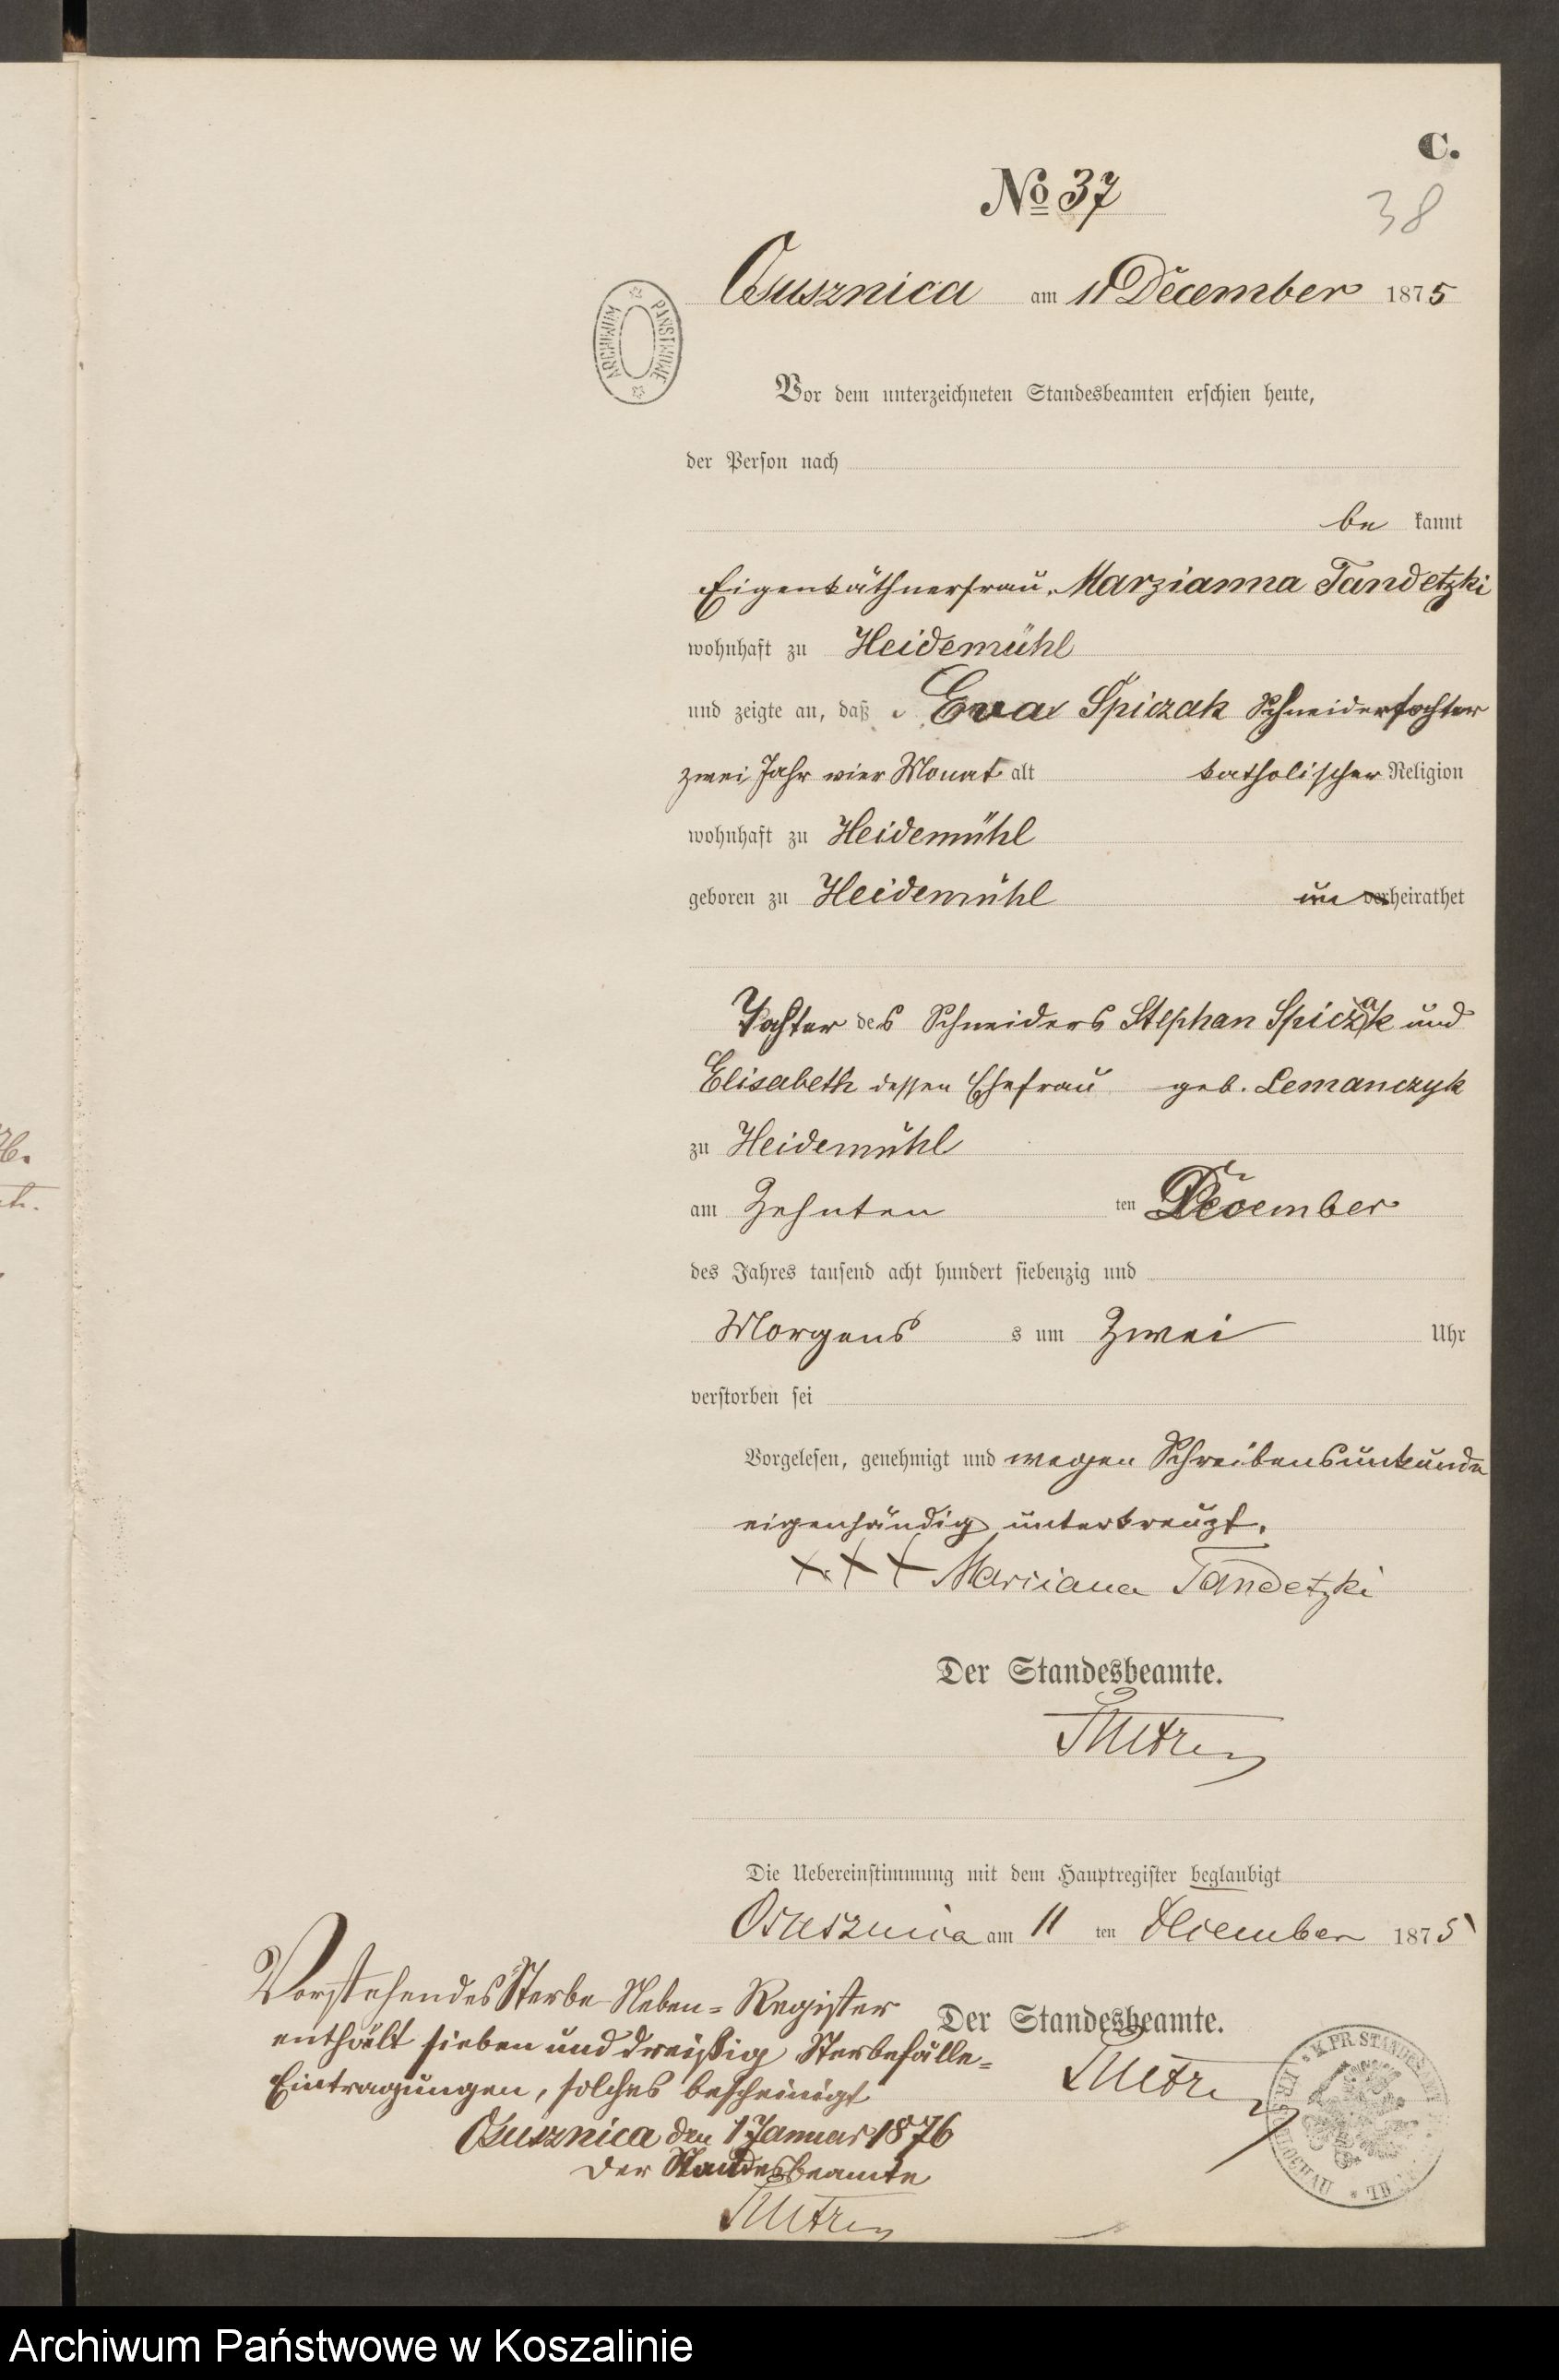 C.
No 37
38
Osusznica am 11 December 1875
ARCHIWUM PAŃSTWOWE
Vor dem unterzeichneten Standesbeamten erschien heute,
der Person nach
be kannt
Eigenkäthnerfrau Marzianna Tandetzki
wohnhaft zu Heidemühl
und zeigte an, daß Eva Spiczak Schneidertochter
zwei Jahr vier Monat alt katholischer Religion
wohnhaft zu Heidemühl
geboren zu Heidemühl un verheirathet
Tochter des Schneiders Stephan Spiczak und
Elisabeth dessen Ehefrau geb. Lemanczyk
zu Heidemühl
am Zehnten ten December
des Jahres tausend acht hundert siebenzig und
Morgens s um Zwei Uhr
verstorben sei
Vorgelesen, genehmigt und wegen Schreibensunkunde
eigenhändig unterkreuzt.
+++ Marciana Tandetzki
Der Standesbeamte.
Die Uebereinstimmung mit dem Hauptregister beglaubigt
Osusznica am 11 ten December 1875
Der Standesbeamte.
Vorstehendes Sterbe Neben-Register
enthält sieben und dreißig Sterbefälle-
Eintragungen, solches bescheinigt
Osusznica den 1 Januar 1876
Der Standesbeamte
K. PR. STANDES AMT
Archiwum Państwowe w Koszalinie